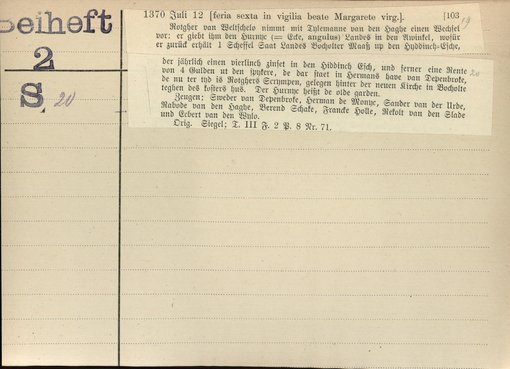 Beiheft
2
S 20
1370 Juli 12 [feria sexta in vigilia beate Margarete virg.]. [103
19
Rotgher van Welschelo nimmt mit Tylemanne van den Haghe einen Wechsel
vor: er giebt ihm den Hurnye (= Ecke, angulus) Landes in den Awinkel, wofür
er zurück erhält 1 Scheffel Saat Landes Bocholter Maaß up den Hyddinch-Esche,
der jährlich einen vierlinch zinset in den Hiddinch Esch, und ferner eine Rente 20
von 4 Gulden ut den spykere, de dar staet in Hermans have van Depenbroke,
de nu ter tyd is Rotghers Scrympen, gelegen hinter der neuen Kirche in Bocholte
teghen des kosters hus. Der Hurnye heißt de olde garden.
Zeugen: Sweder van Depenbroke, Herman de Monye, Sander van der Urde,
Radode van den Haghe, Berend Schake, Francke Holle, Rekolt van den Slade
und Erbert van den Wylo.
Orig. Siegel; T. III F. 2 P. 8 Nr. 71.